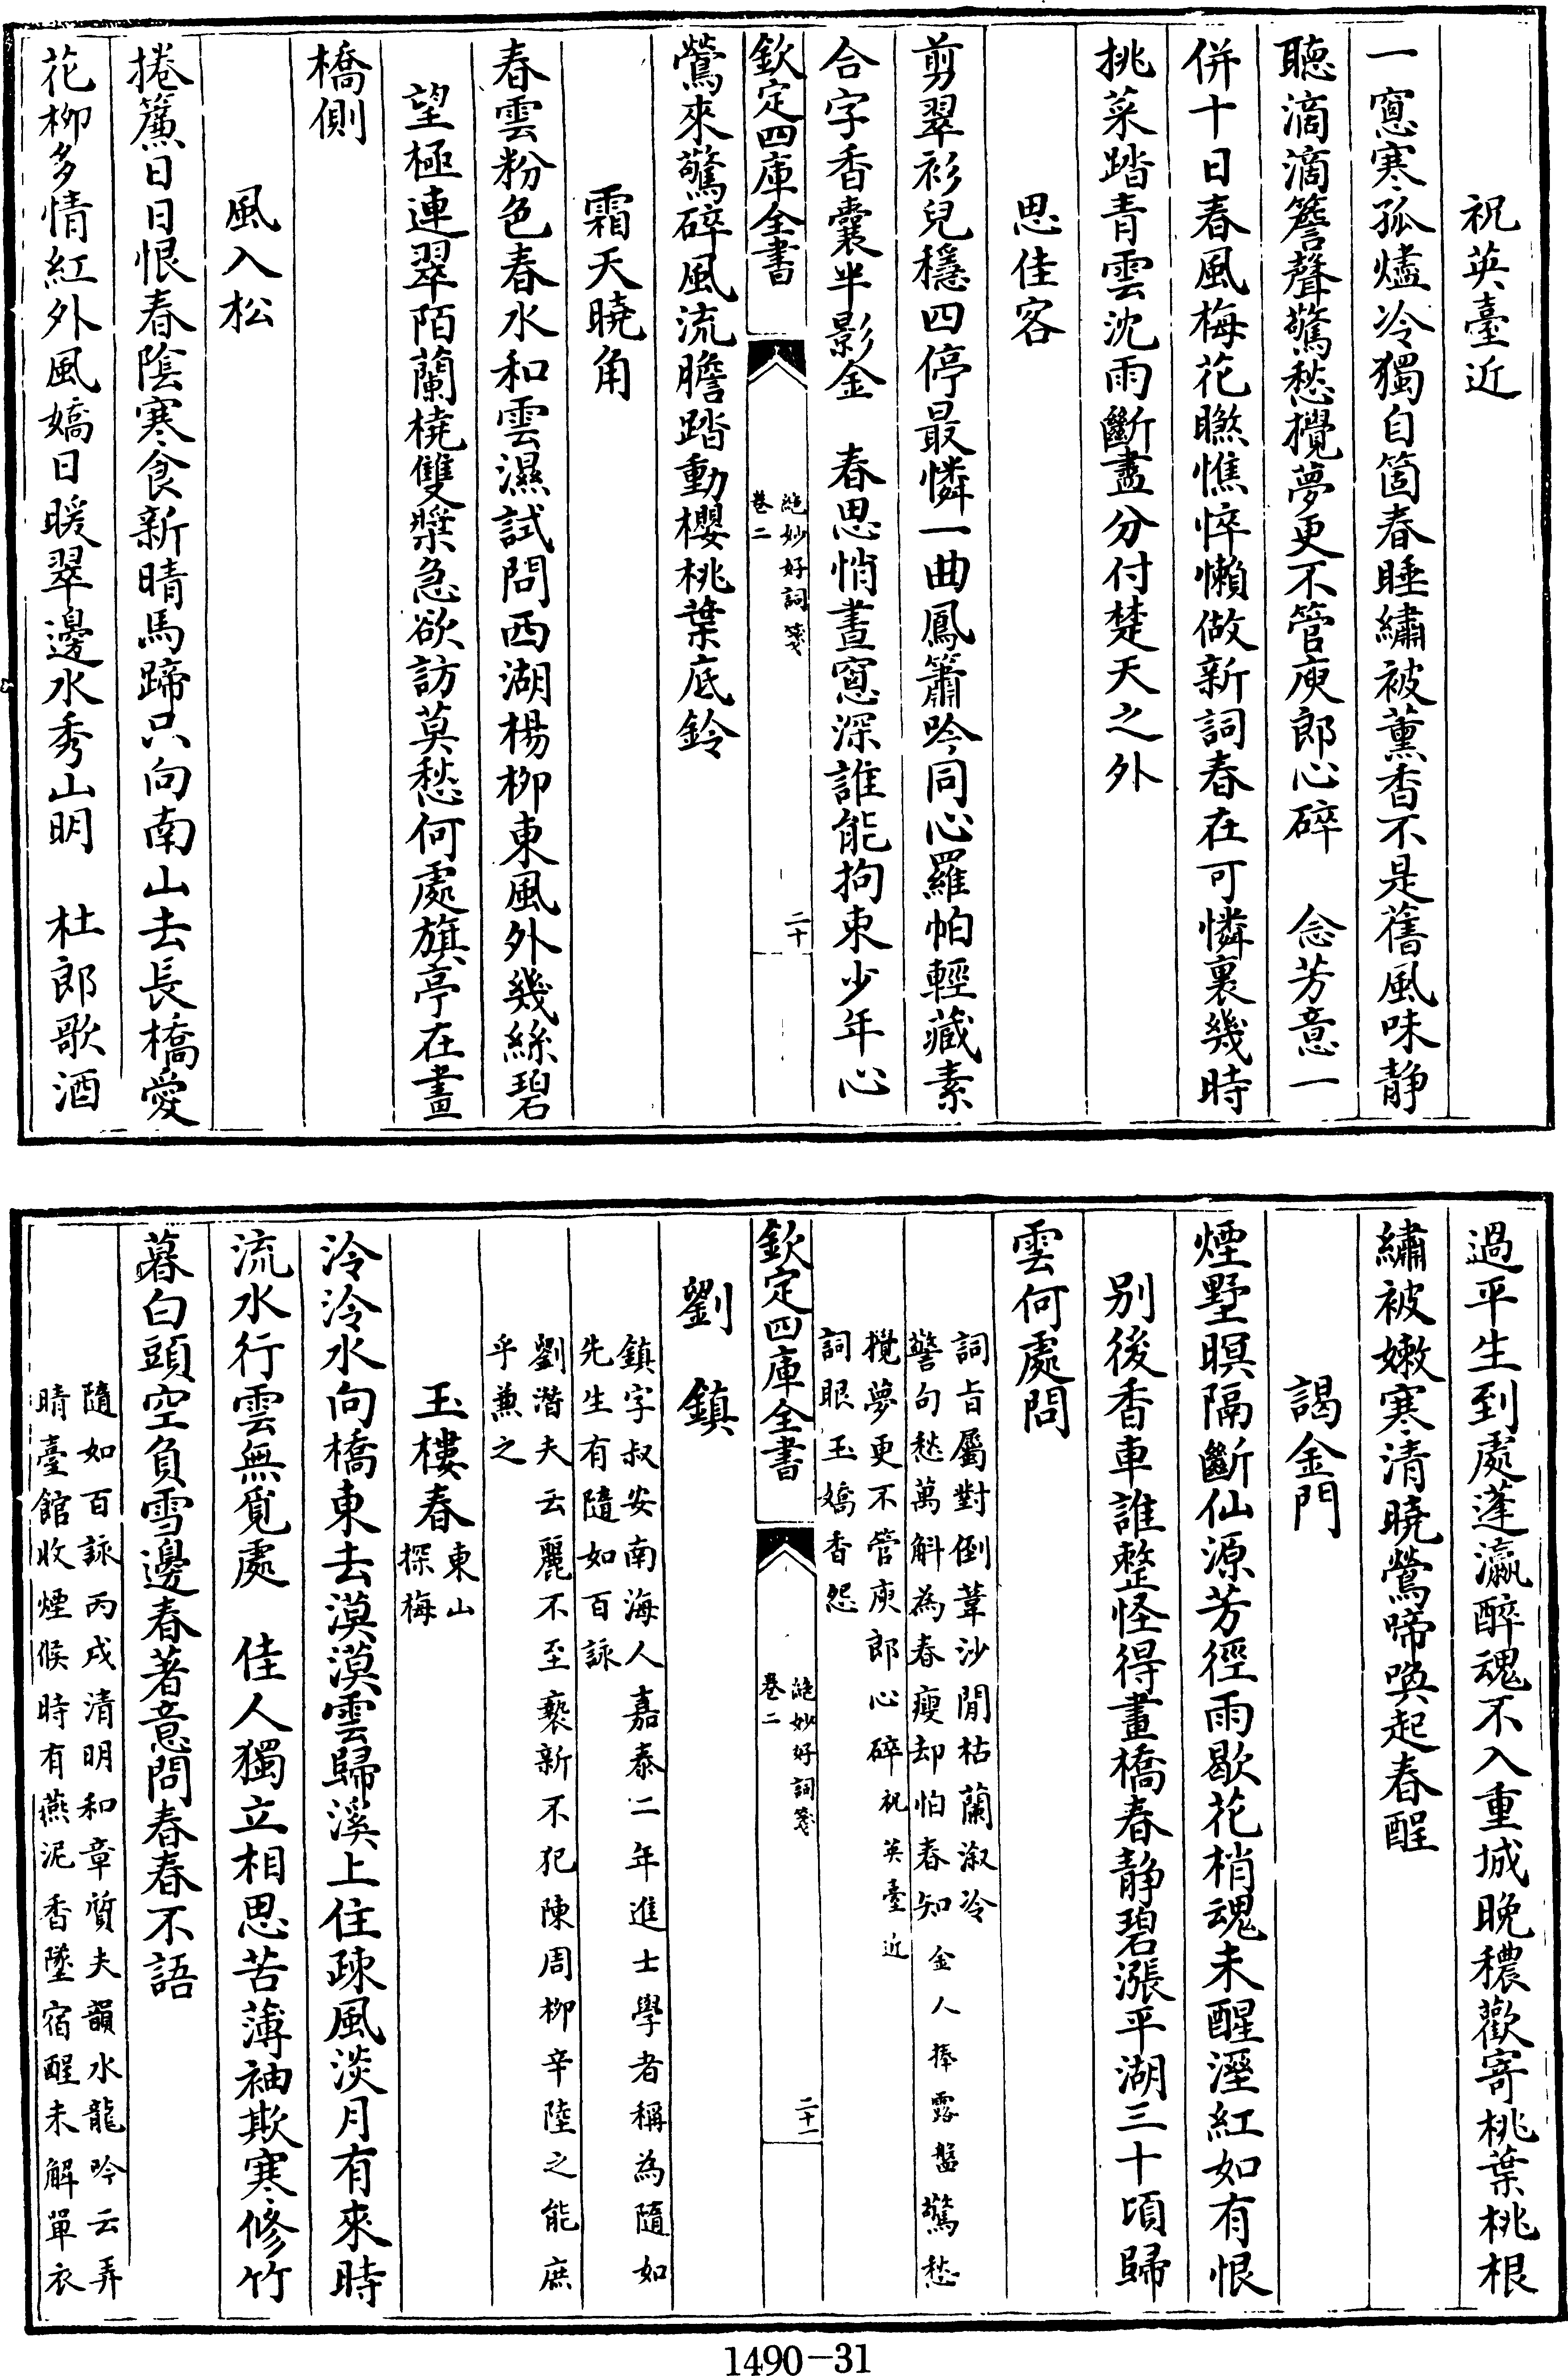 祝英臺近
一窻寒孤燼冷獨自箇春睡繡被薰香不是舊風味静
聴滴滴簷聲驚愁攪夢更不管庾郎心碎　念芳意一
併十日春風梅花瞧憔悴懶做新詞春在可憐裏幾時
挑菜踏青雲沈雨斷盡分付楚天之外
思佳客
剪翠衫兒穩四停最憐一曲鳳簫吟同心羅帕輕藏素
合字香囊半影金　春思悄晝窻深誰能拘束少年心
欽定四庫全書
絶妙好詞箋
卷二
二十
鶯來驚碎風流膽踏動櫻桃葉底鈴
霜天曉角
春雲粉色春水和雲濕試問西湖楊柳東風外幾絲碧
望極連翠陌蘭橈雙槳急欲訪莫愁何處旗亭在畫
橋側
風入松
捲簾日日恨春陰寒食新晴馬蹄只向南山去長橋愛
花柳多情紅外風嬌日暖翠邊水秀山明　杜郎歌酒
過平生到處蓬瀛醉魂不入重城晚穠歡寄桃葉桃根
繡被嫩寒清曉鶯啼喚起春酲
謁金門
煙墅暝隔斷仙源芳徑雨歇花梢魂未醒溼紅如有恨
别後香車誰整怪得畫橋春静碧漲平湖三十頃歸
雲何處問
詞旨屬對倒葦沙閒枯蘭溆冷
警句愁萬斛為春瘦却怕春知金人捧露盤驚愁
攪夢更不管庾郎心碎祝英臺近
詞眼玉嬌香怨
欽定四庫全書
絶妙好詞箋
卷二
二十一
劉鎮
鎮字叔安南海人嘉泰二年進士學者稱為隨如
先生有隨如百詠
劉潛夫云麗不至褻新不犯陳周柳辛陸之能庶
乎兼之
玉樓春東山
探梅
泠泠水向橋東去漠漠雲歸溪上住疎風淡月有來時
流水行雲無覓處　佳人獨立相思苦薄袖欺寒修竹
暮白頭空負雪邊春著意問春春不語
隨如百詠丙戌清明和章質夫韻水龍吟云弄
晴臺館收煙候時有燕泥香墜宿酲未解單衣
1490-31